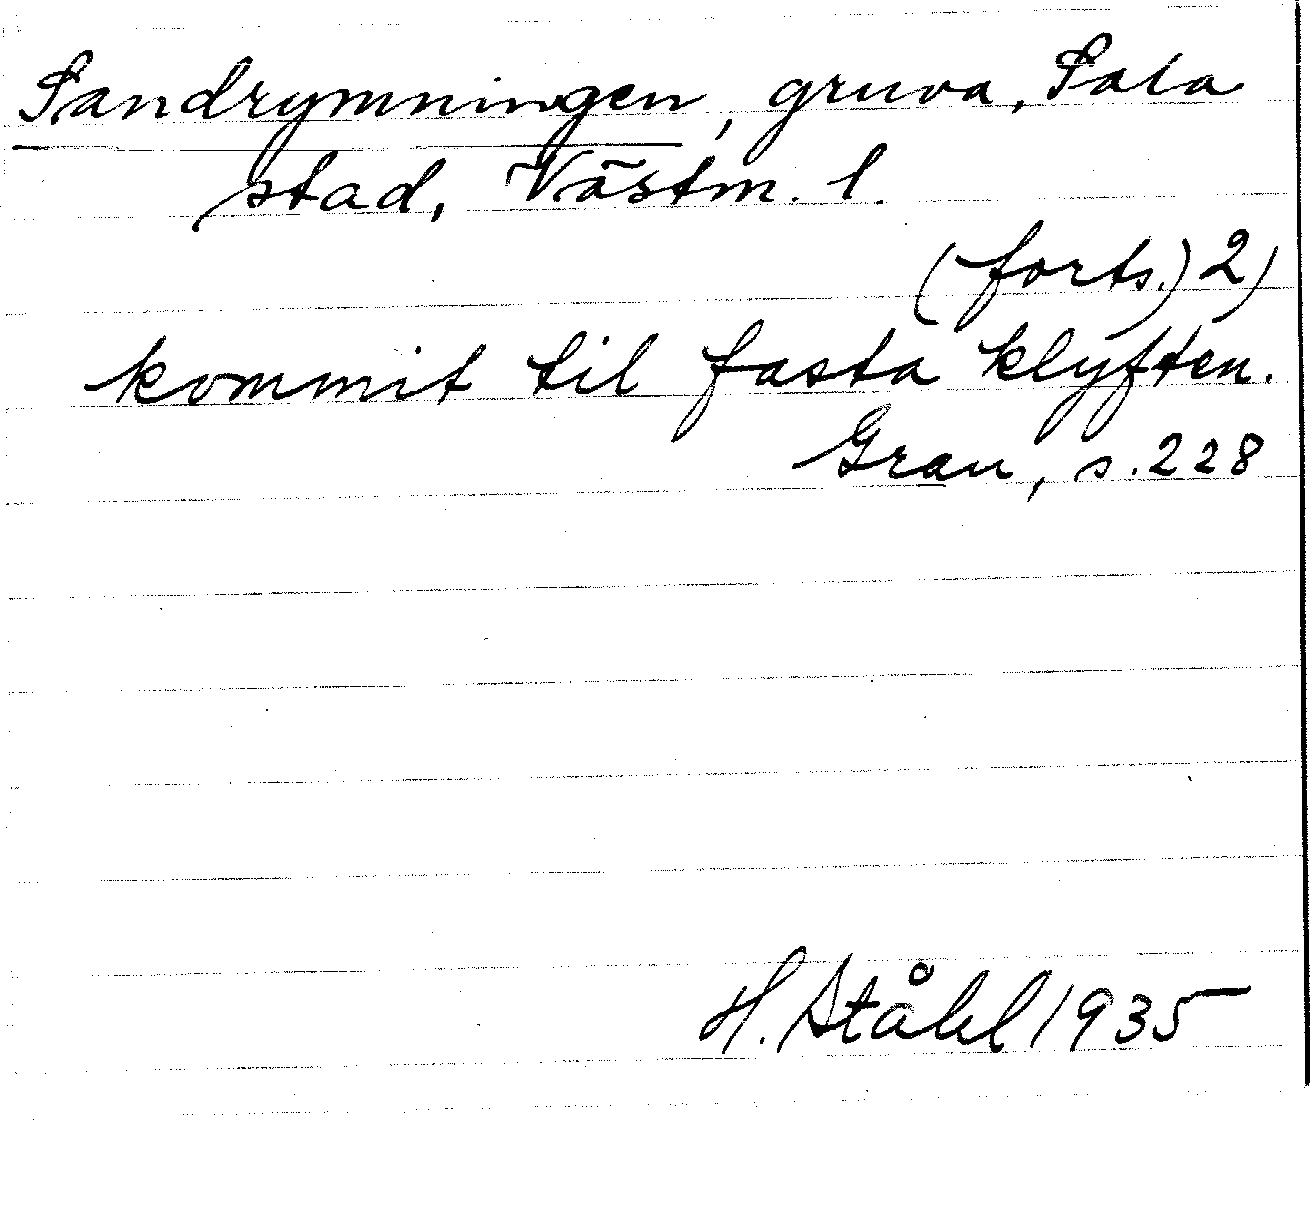 Sandrymningen, gruva, Sala
stad, Västm. l.
(forts.) 2)
kommit til fasta klyften.
Grau, s. 228
H. Ståhl 1935